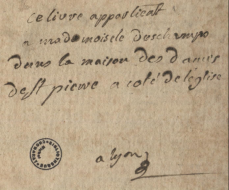 ce livre appartient
a mademoisele duschamp
dans la maison des dames
de st pierre a coté de leglise
a lyon